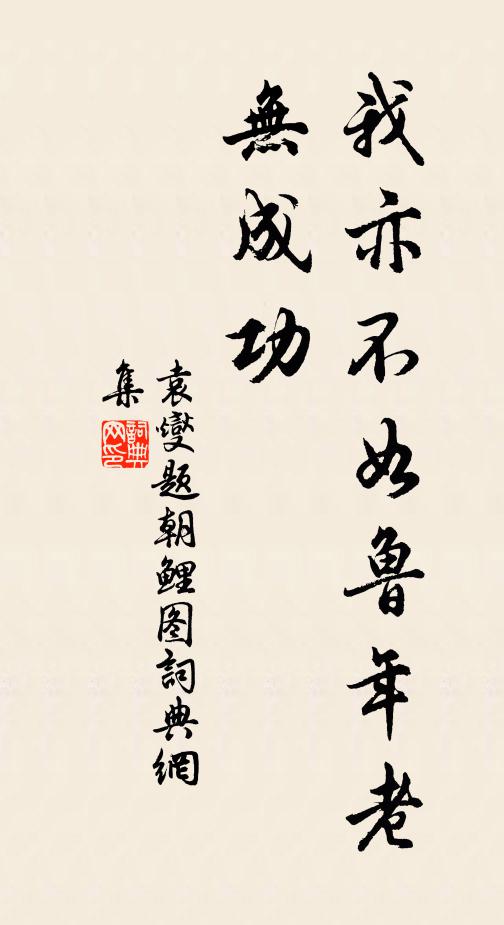 我亦不如鲁年老
無成功
袁燮题朝鲤图詞典網
集
詞典
网印